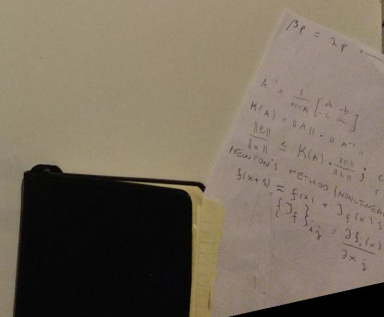 βp = 2p.
A⁻¹ = 1/det A [d -b; -c a]
K(A) = ||A|| · ||A⁻¹
||e||/||x|| ≤ K(A) · ||r||/||b||
NEWTON'S METHOD (NONLINEAR
f(x+s) = f(x) + J_f(x) s
{J_f}_ij = ∂f_i(x)/∂x_j